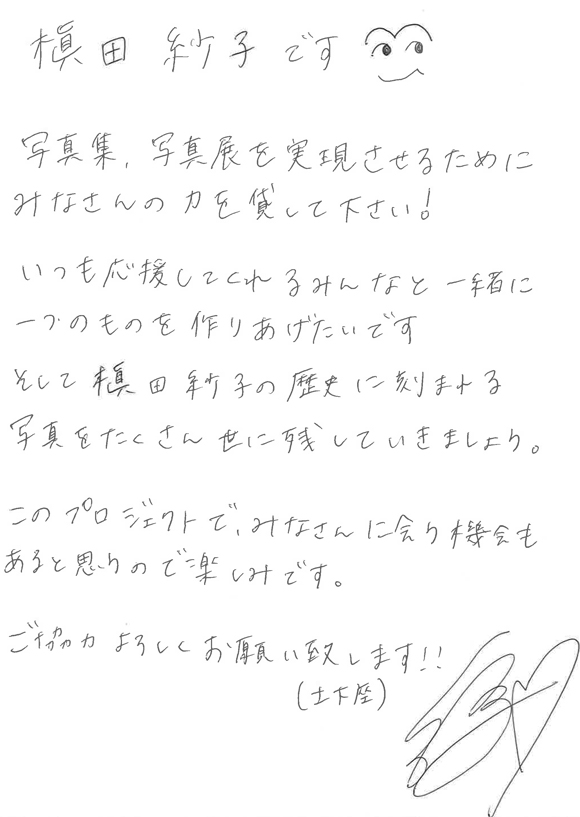 槙田 紗子です
写真集、写真展を実現させるために
みなさんの力を貸して下さい!
いつも応援してくれるみんなと一緒に
一つのものを作りあげたいです
そして槙田紗子の歴史に刻まれる
写真をたくさん世に残していきましょう。
このプロジェクトで、みなさんに会う機会も
あると思うので楽しみです。
ご協力よろしくお願い致します!!
(土下座)